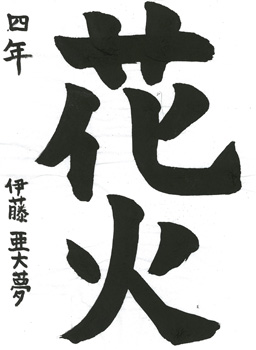 花火
四年
伊藤亜大夢